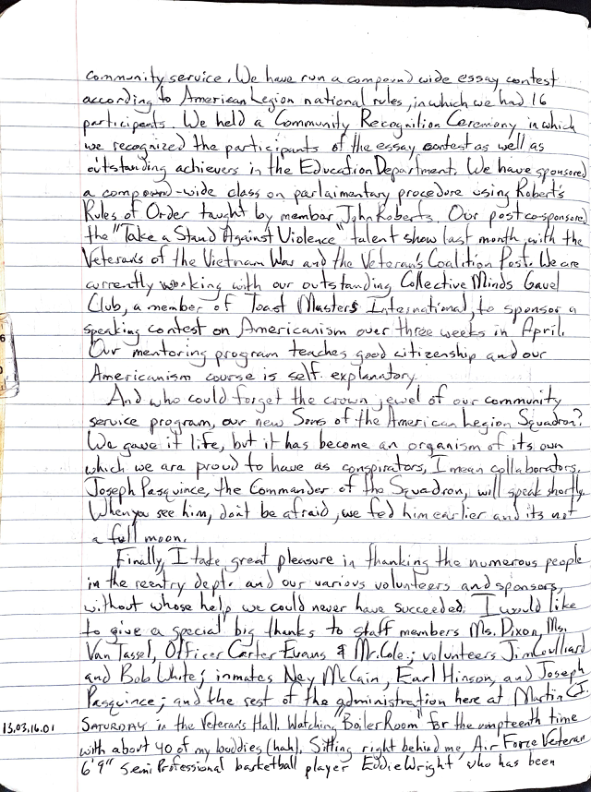 community service. We have run a compound wide essay contest
according to American Legion national rules, in which we had 16
participants. We held a Community Recognition Ceremony in which
we recognized the participants of the essay contest as well as
outstanding achievers in the Education Department. We have sponsored
a compound-wide class on parlaimentary procedure using Robert's
Rules of Order taught by member John Roberts. Our post co-sponsored
the "Take a Stand Against Violence" talent show last month, with the
Veterans of the Vietnam War and the Veteran's Coalition Post. We are
currently working with our outstanding Collective Minds Gavel
Club, a member of Toast Masters International, to sponsor a
speaking contest on Americanism over three weeks in April.
Our mentoring program teaches good citizenship and our
Americanism course is self explanatory.
And who could forget the crown jewel of our community
service program, our new Sons of the American Legion Squadron?
We gave it life, but it has become an organism of its own
which we are proud to have as conspirators, I mean collaborators.
Joseph Pasquince, the Commander of the Squadron, will speak shortly.
When you see him, don't be afraid, we fed him earlier and its not
a full moon.
Finally, I take great pleasure in thanking the numerous people
in the reentry dept. and our various volunteers and sponsors,
without whose help we could never have succeeded. I would like
to give a special big thanks to staff members Ms. Dixon, Ms.
Van Tassel, Officer Carter Evans & Mr. Cole; volunteers Jim Coulliard
and Bob White; inmates Ney McCain, Earl Hinson, and Joseph
Pasquince; and the rest of the administration here at Martin C.I.
13.03.16.01 SATURDAY in the Veteran's Hall. Watching "Boiler Room" for the umpteenth time
with about 40 of my buddies (hah). Sitting right behind me, Air Force Veteran
6'9" semi Professional basketball player Eddie Wright who has been
6